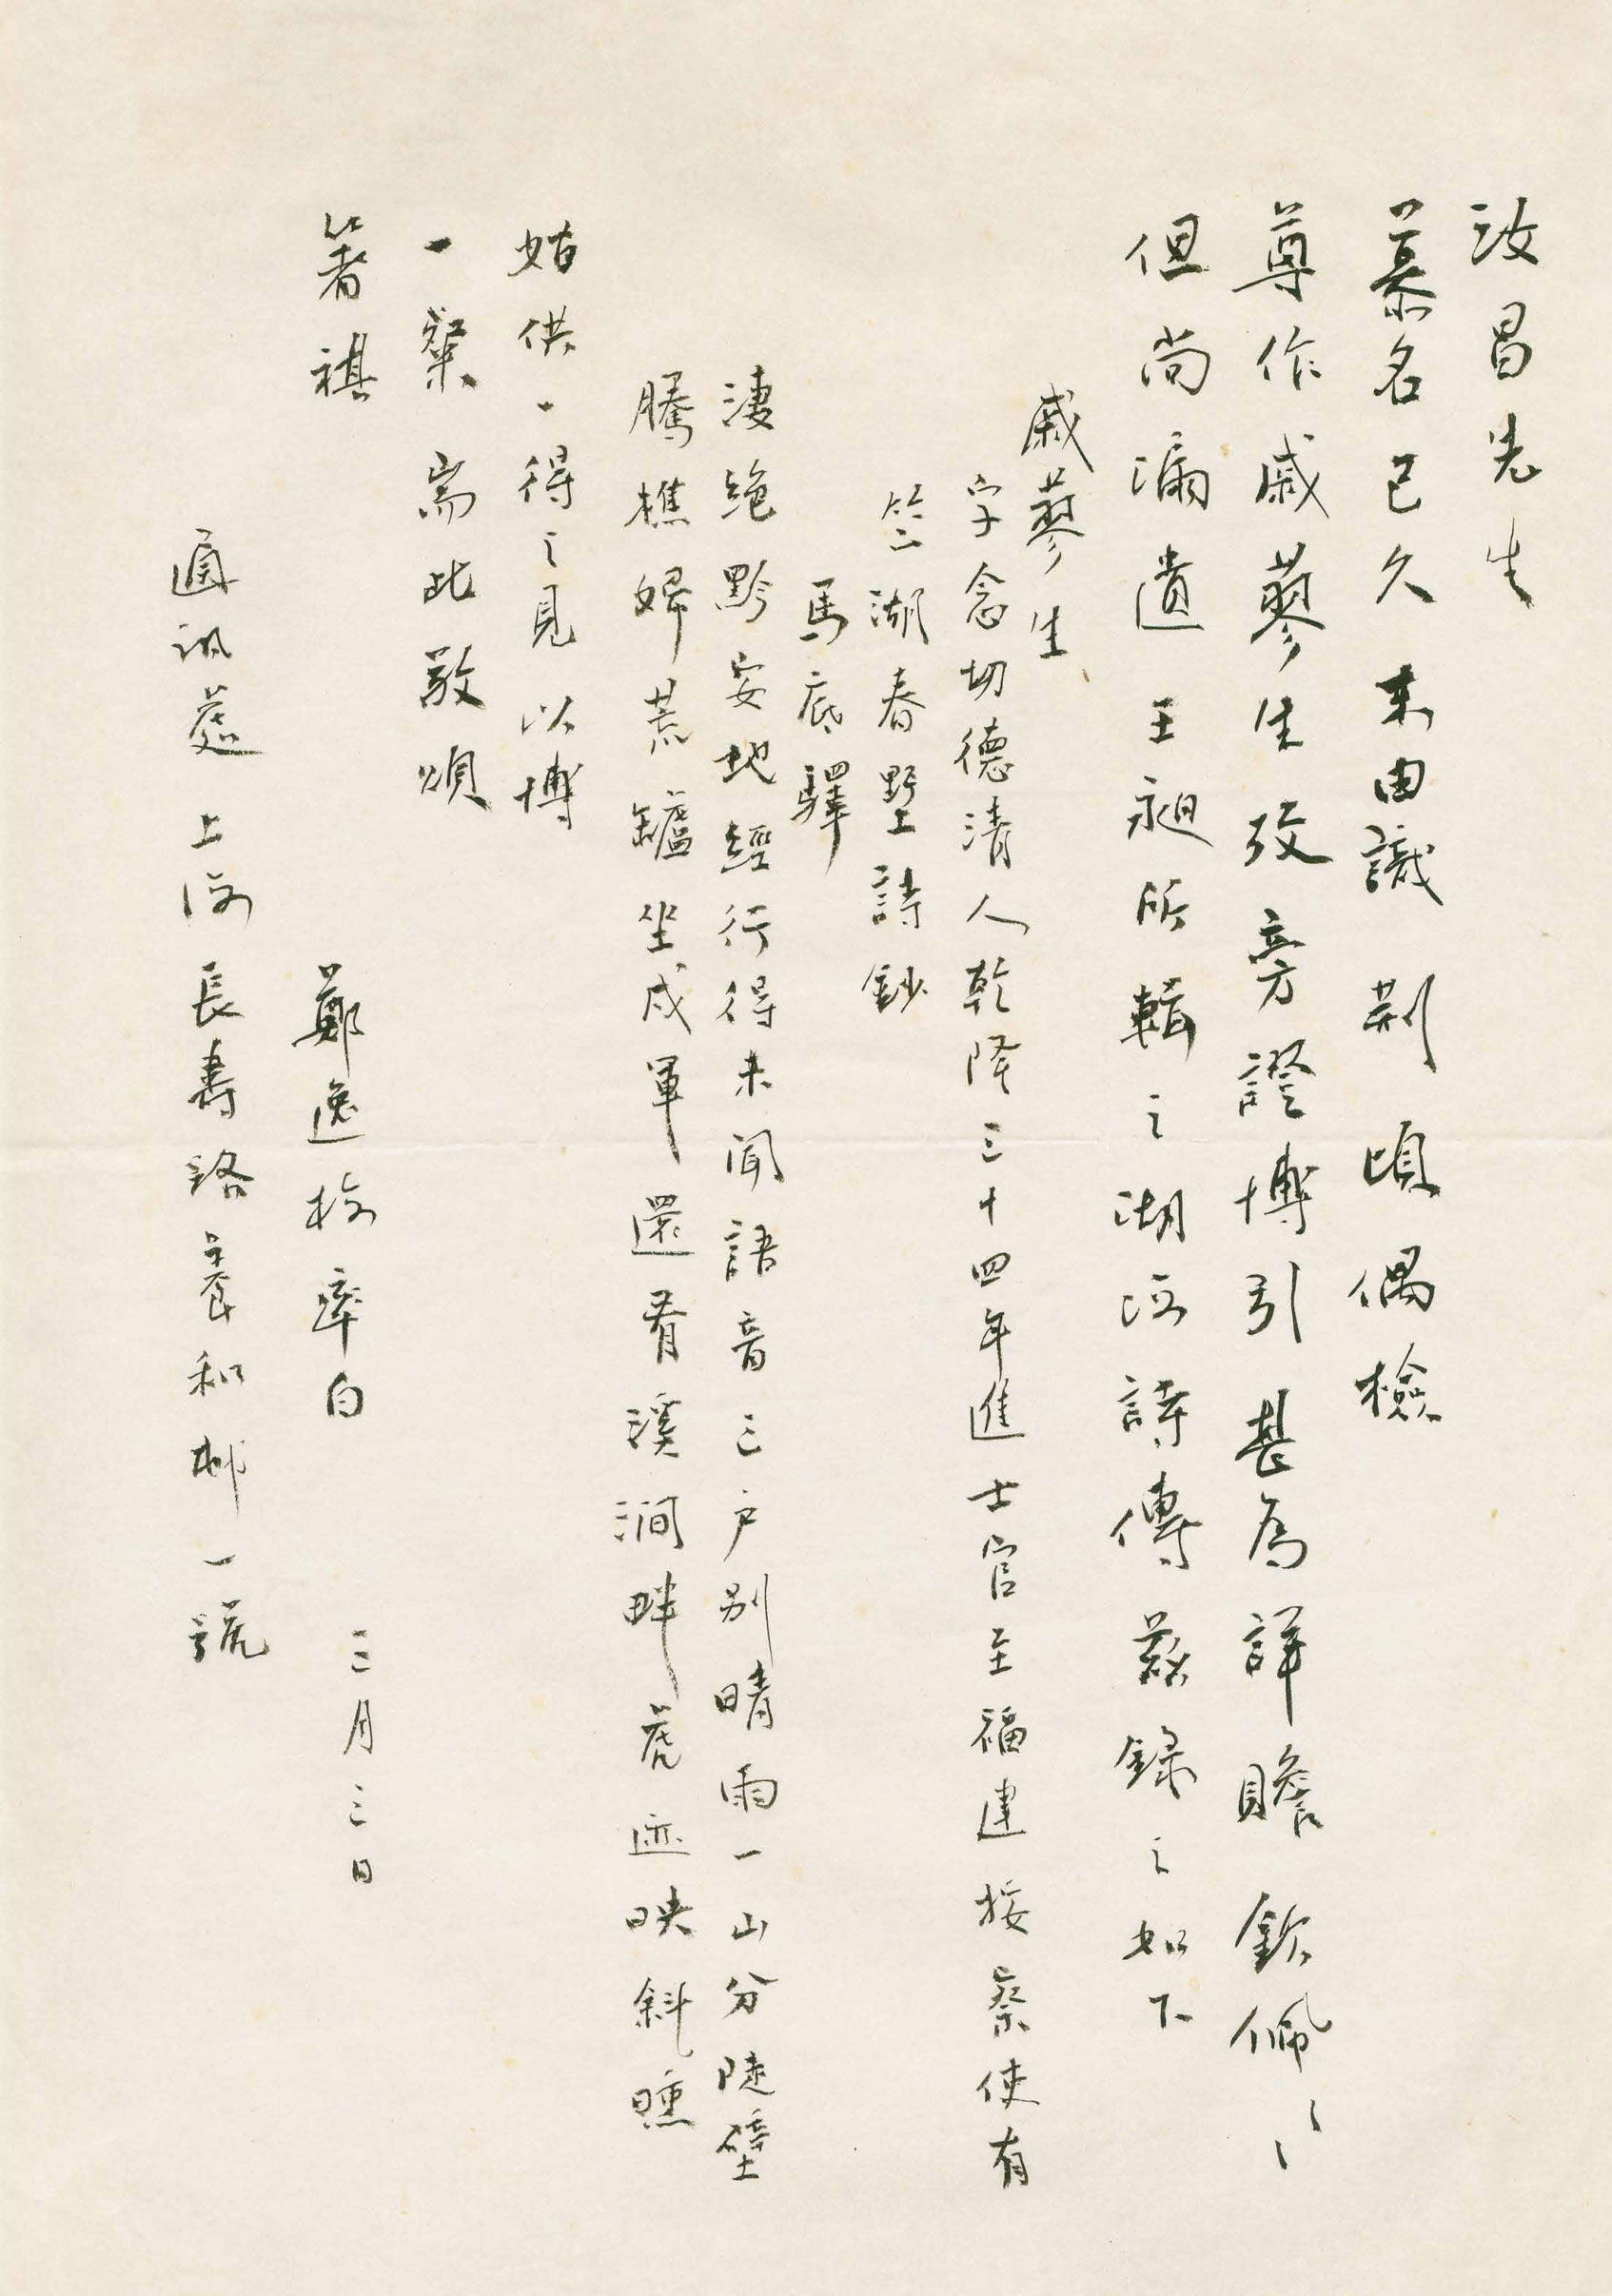 汝昌先生
慕名已久未由識荆頃偶檢
尊作戚蓼生攷旁證博引甚為詳贍欽佩〻〻
但尚漏遺王昶所輯之湖海詩傳茲錄之如下
戚蓼生
字念切德清人乾隆三十四年進士官至福建按察使有
竺湖春墅詩鈔
馬底驛
淒絕黔安地經行得未聞語音三户别晴雨一山分陡壁
騰樵婦荒罏坐戍軍還看溪澗畔虎迹映斜曛
姑供一得之見以博
一粲耑此敬頌
箸祺
鄭逸梅率白 三月三日
通訊處上海長壽路養和邨一號